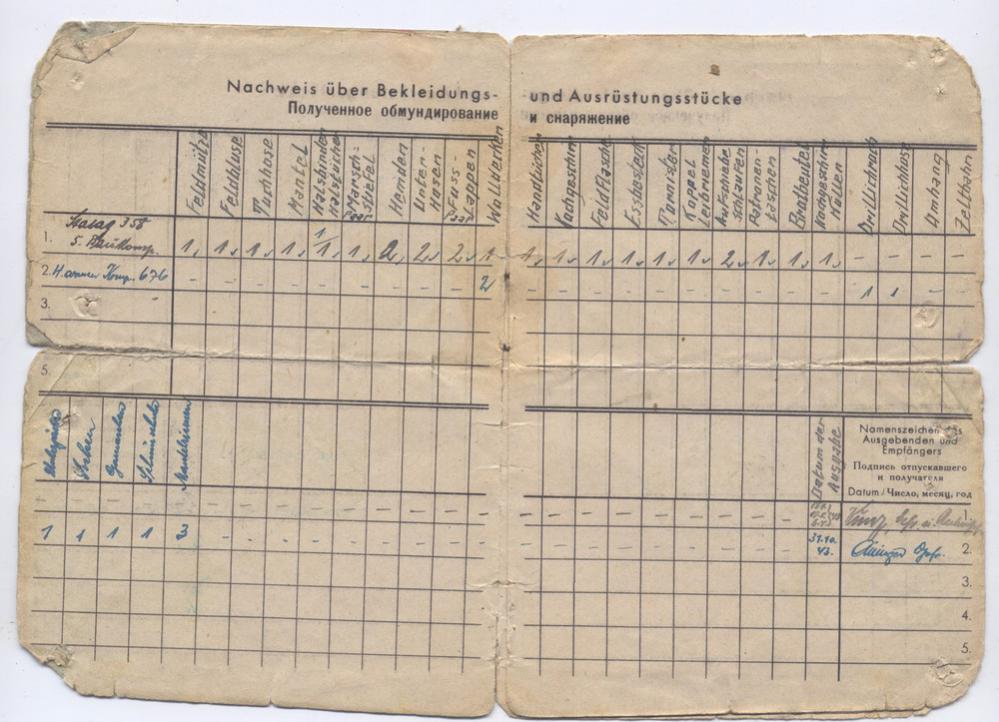 Nachweis über Bekleidungs- und Ausrüstungsstücke
Полученное обмундирование и снаряжение
Feldmütze
Feldbluse
Tuchhose
Mantel
Halsbinden
Halstücher
Marsch-
stiefel
Paar
Hemden
Unter-
Hosen
Fuss-
lappen
Paar
Wolldecken
Handtücher
Kochgeschirr
Feldflasche
Essbesteck
Tornister
Koppel
Leibriemen
Aufschiebe
schlaufen
Patronen-
taschen
Brotbeutel
Kochgeschirr
Drillichrock
Drillichhose
Umhang
Zeltbahn
1. Stalag 358
5. Baukomp. 1 1 1 1 1/1 1 2 2 2 1 1 1 1 1 1 1 2 1 1 1 - - - -
2. Komp. 676 - - - - - - - - - 2 - - - - - - - - - - 1 1 - -
3.
5.
Socken
Datum der
Ausgabe
Namenszeichen des
Ausgebenden und
Empfängers
Подпись отпускавшего
и получателя
Datum / Число, месяц, год
- - - - - - - - - - - - - - - - - - - - - - 1.
1 1 1 1 3 - - - - - - - - - - - - - - - - - 31.10.
43. 2.
3.
4.
5.